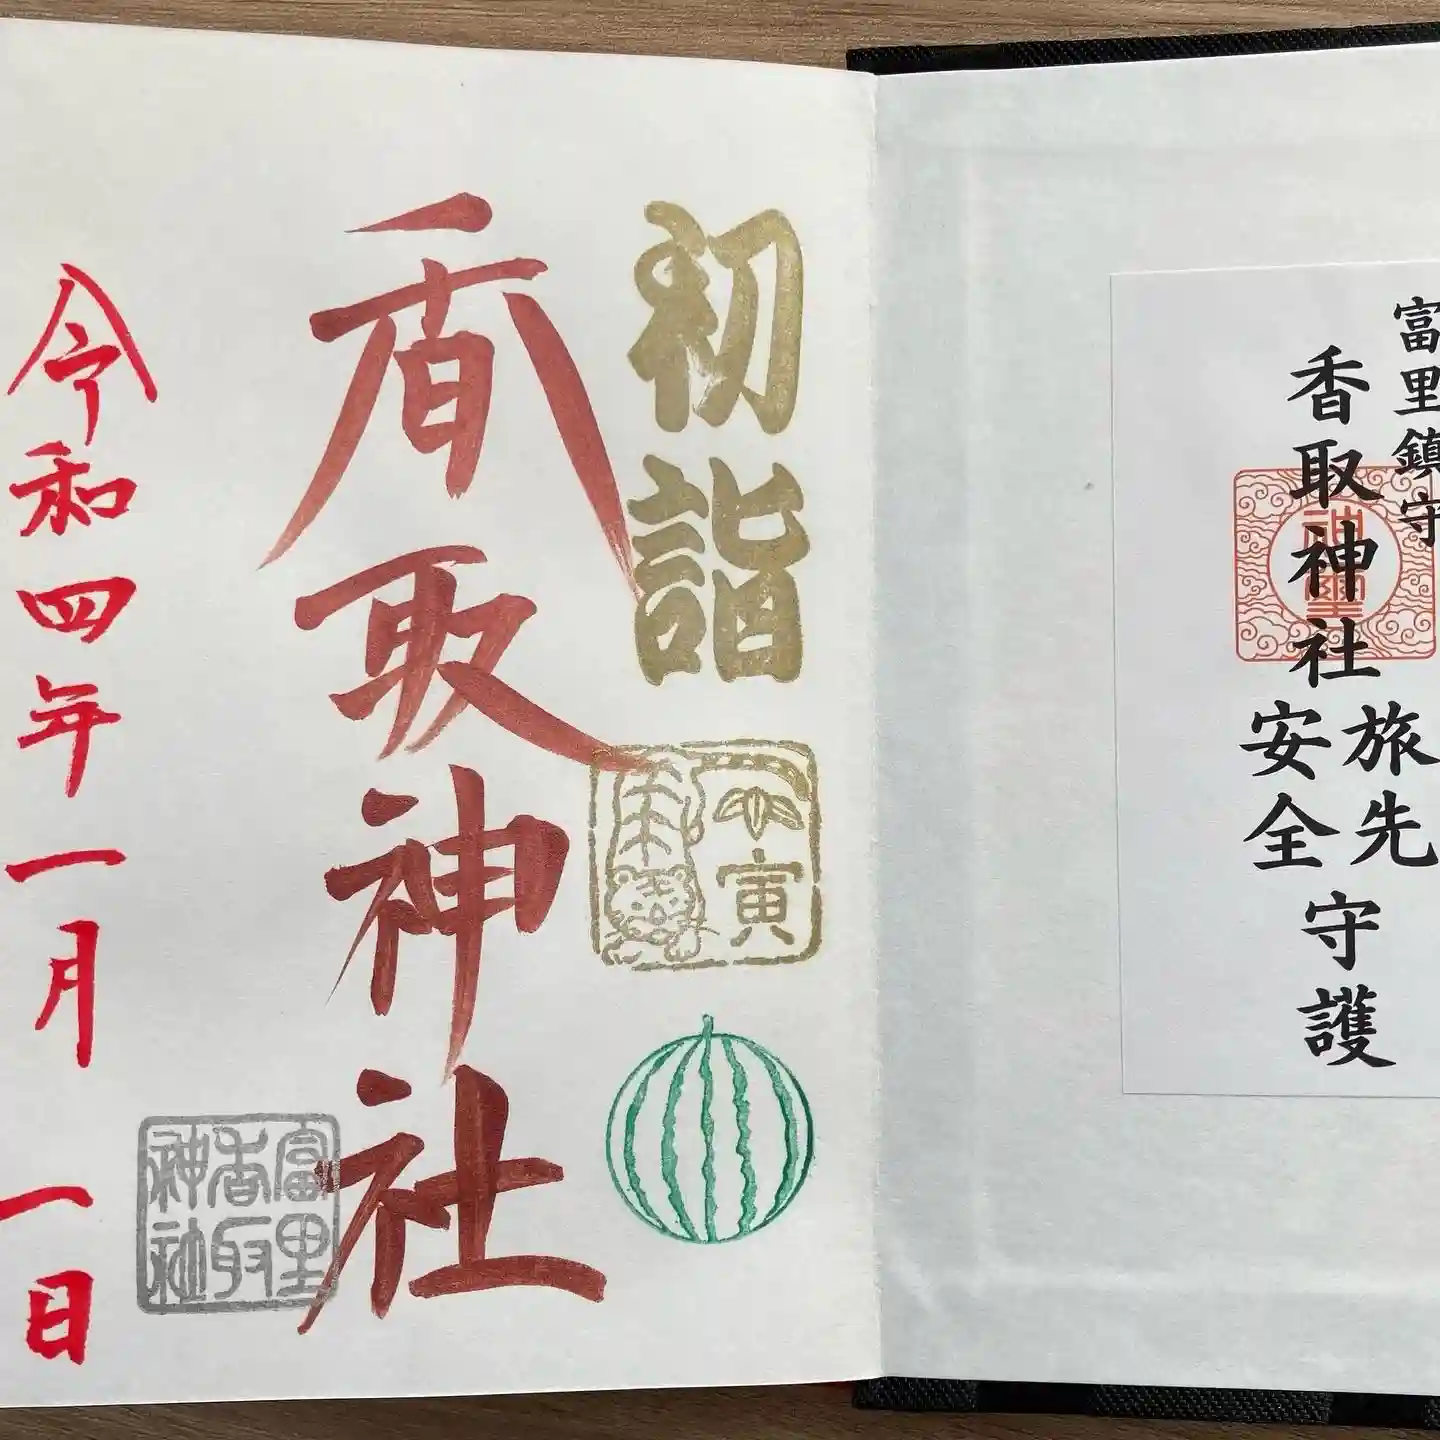 富里鎮守
香取神社
旅先
安全
守護
神璽
初詣
寅
香取神社
富里
香取
神社
令和四年一月一日